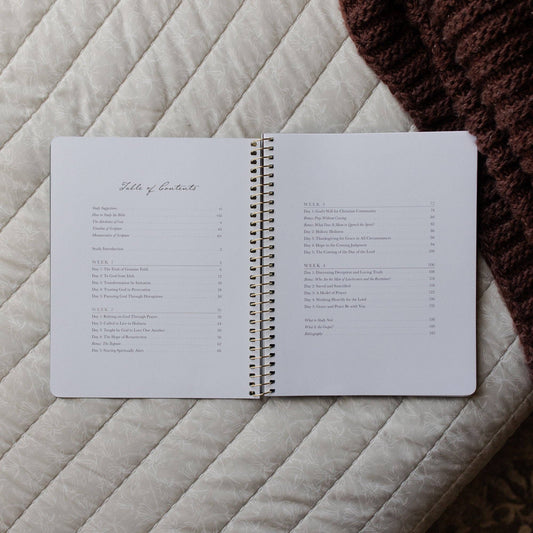 Table of Contents
Study Suggestions vi
How to Study the Bible viii
The Attributes of God x
Timeline of Scripture xii
Metanarrative of Scripture xiv
Study Introduction 2
WEEK 1
Day 1: The Fruit of Genuine Faith
Day 2: To God from Idols
Day 3: Transformation by Imitation
Day 4: Trusting God in Persecution
Day 5: Pursuing God Through Disruptions
WEEK 2
Day 1: Relying on God Through Prayer
Day 2: Called to Live in Holiness
Day 3: Taught by God to Love One Another
Day 4: The Hope of Resurrection
Bonus: The Rapture
Day 5: Staying Spiritually Alert
WEEK 3
Day 1: God's Will for Christian Community
Bonus: Pray Without Ceasing
Bonus: What Does It Mean to Quench the Spirit?
Day 2: Holistic Holiness
Day 3: Thanksgiving for Grace in All Circumstances
Day 4: Hope in the Coming Judgment
Day 5: The Coming of the Day of the Lord
WEEK 4
Day 1: Discerning Deception and Loving Truth
Bonus: Who Are the Man of Lawlessness and the Restrainer?
Day 2: Saved and Sanctified
Day 3: A Model of Prayer
Day 4: Working Heartily for the Lord
Day 5: Grace and Peace Be With You
What to Study Next
What is the Gospel?
Bibliography